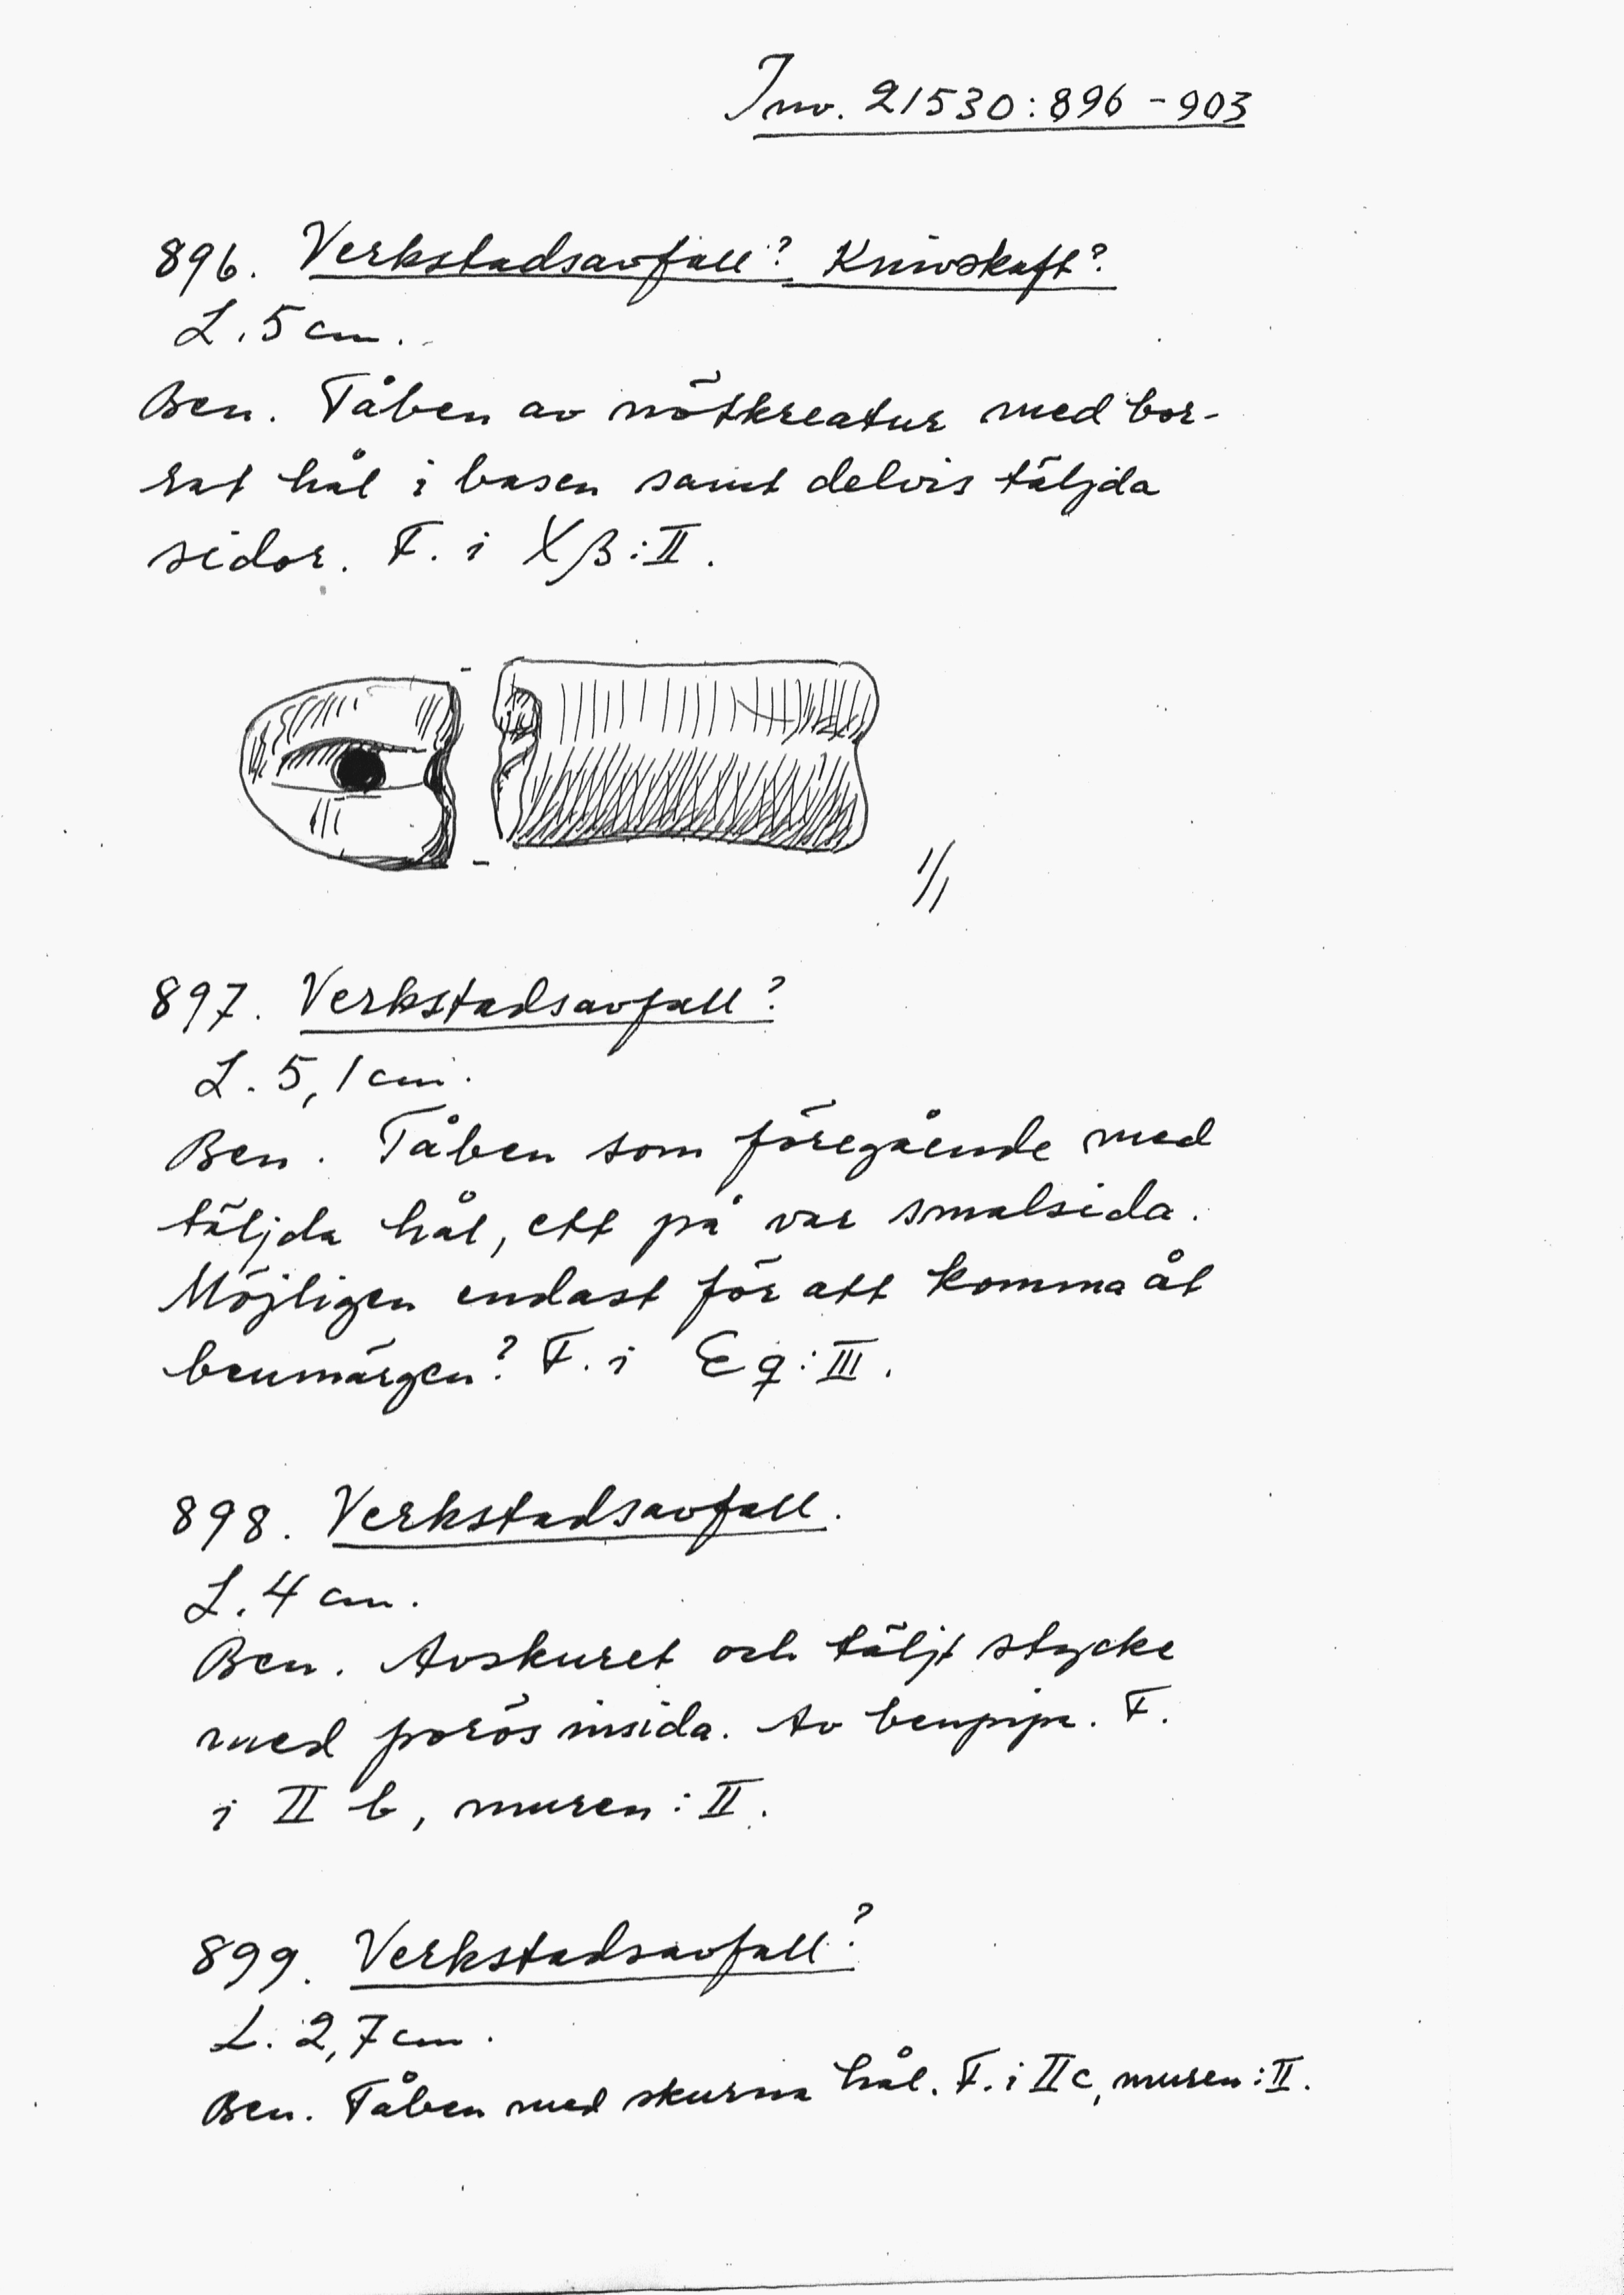 Inv. 21530:896-903
896. Verkstadsavfall? Knivskaft?
L. 5 cm.
Ben. Tåben av nötkreatur med bor-
rat hål i basen samt delvis täljda
sidor. F. i Xβ:II.
1/1
897. Verkstadsavfall?
L. 5,1 cm.
Ben. Tåben som föregående med
täljda hål, ett på var smalsida.
Möjligen endast för att komma åt
benmärgen? F. i Eq:III.
898. Verkstadsavfall.
L. 4 cm.
Ben. Avskuret och täljt stycke
med porös insida. Av benpipa. F.
i II b, muren:II.
899. Verkstadsavfall?
L. 2,7 cm.
Ben. Tåben med skurna hål. F. i II c, muren:II.